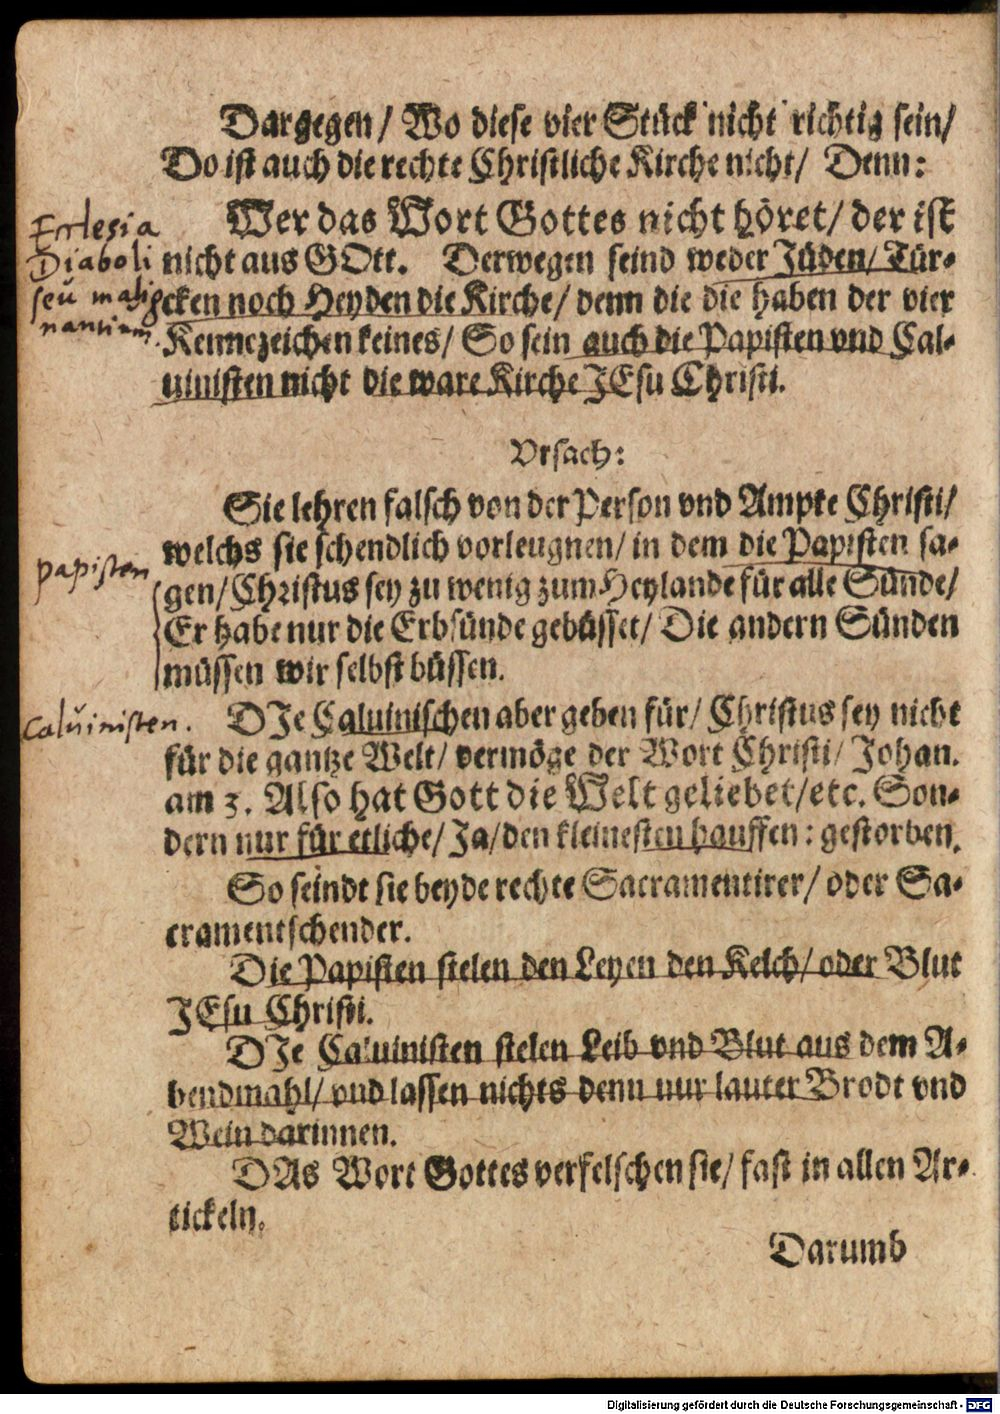 Dargegen / Wo diese vier Stück nicht richtig sein/
Do ist auch die rechte Christliche Kirche nicht/ Denn:
Wer das Wort Gottes nicht höret/ der ist
Ecclesia
Diaboli
seu malig
nantium.
nicht aus GOtt. Derwegen seind weder Jüden/ Tür-
cken noch Heyden die Kirche/ denn die die haben der vier
Kennezeichen keines/ So sein auch die Papisten vnd Cal-
uinisten nicht die ware Kirche JEsu Christi.
Vrsach:
Sie lehren falsch von der Person vnd Ampte Christi/
welchs sie schendlich vorleugnen/ in dem die Papisten sa-
papisten
gen/ Christus sey zu wenig zum Heylande für alle Sünde/
Er habe nur die Erbsünde gebüsset/ Die andern Sünden
müssen wir selbst büssen.
Caluinisten.
DJe Caluinischen aber geben für/ Christus sey nicht
für die gantze Welt/ vermöge der Wort Christi/ Johan.
am 3. Also hat Gott die Welt geliebet/etc. Son-
dern nur für etliche/ Ja/ den kleinesten hauffen: gestorben.
So seindt sie beyde rechte Sacramentirer/ oder Sa-
cramentschender.
Die Papisten stelen den Leyen den Kelch/ oder Blut
JEsu Christi.
DJe Caluinisten stelen Leib vnd Blut aus dem A-
bendmahl/ vnd lassen nichts denn nur lauter Brodt vnd
Wein darinnen.
DAs Wort Gottes verfelschen sie/ fast in allen Ar-
tickeln.
Darumb
Digitalisierung gefördert durch die Deutsche Forschungsgemeinschaft - DFG